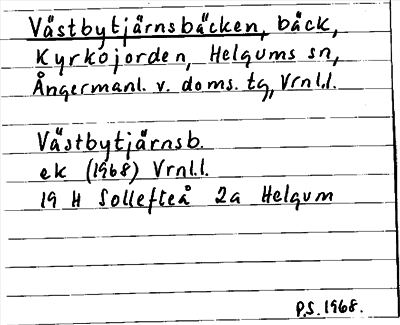 Västbytjärnsbäcken, bäck,
Kyrkojorden, Helgums sn,
Ångermanl. v. doms. tg, Vrnl.l.
Västbytjärnsb.
ek (1968) Vrnl.l.
19 H Sollefteå 2a Helgum
P.S. 1968.